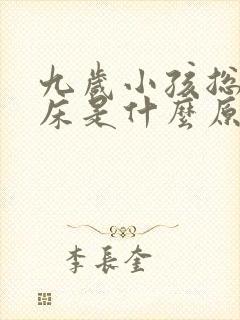 九歲小孩总
床是什麼原
李長奎